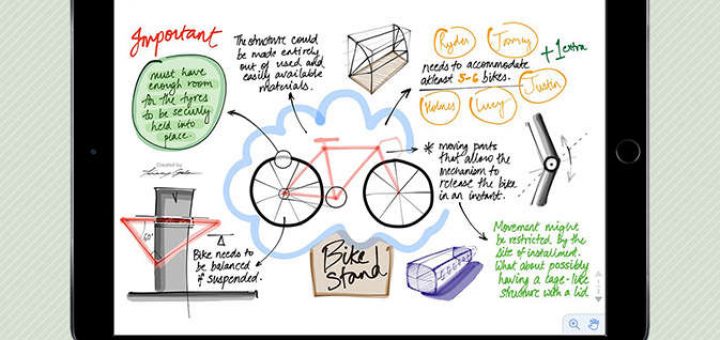 Important
must have
enough room
for the tyres
to be securely
held into
place.
Created by
The structure could
be made entirely
out of used and
easily available
materials.
Ryder
Tommy
+1 extra
needs to accommodate
atleast 5-6 bikes.
Justin
Holmes
Lucy
* moving parts
that allow the
mechanism to
release the bike
in an instant.
60°
Bike needs to
be balanced
if suspended.
Bike
Stand
Movement might
be restricted by the
site of installment.
What about possibly
having a cage-like
structure with a lid